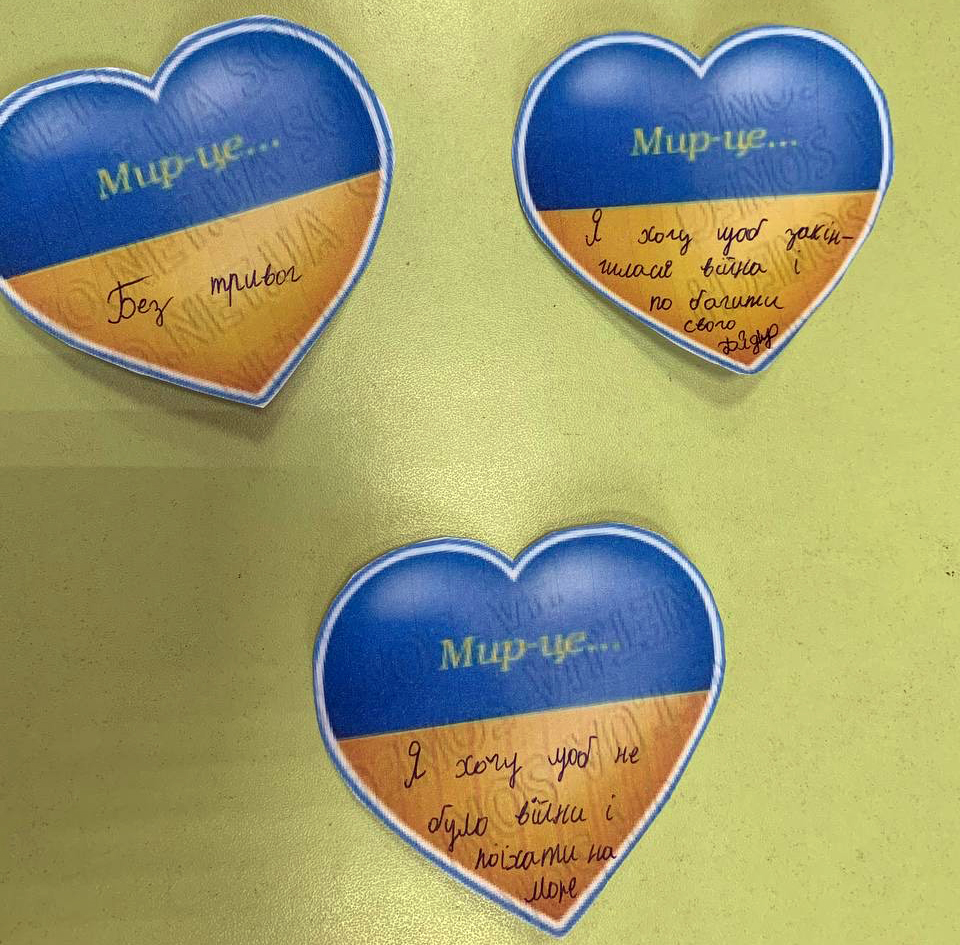 Мир-це...
Без тривог
Мир-це...
Я хочу щоб закін-
чилася війна і
по бачити
свого
Мир-це...
Я хочу щоб не
було війни і
поїхати на
море